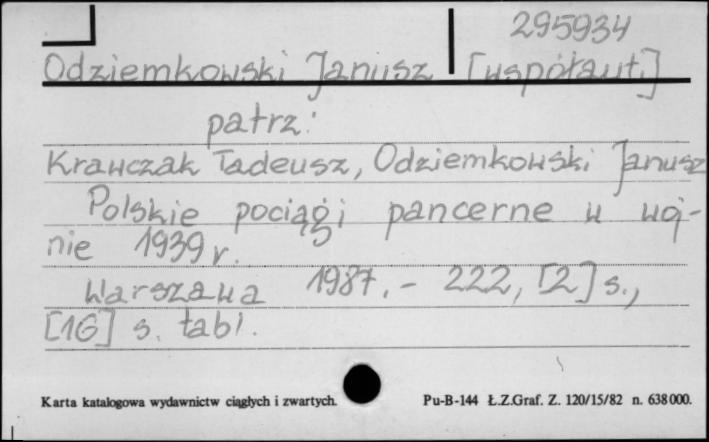 295934
Odziemkowski Janusz [współaut.]
patrz:
Krawczak Tadeusz, Odziemkowski Janusz
Polskie pociągi pancerne w woj-
nie 1939 r.
Warszawa 1987.- 222, [2] s.,
[16] s. tabl.
Karta katalogowa wydawnictw ciągłych i zwartych. Pu-B-144 Ł.Z.Graf. Z. 120/15/82 n. 638000.